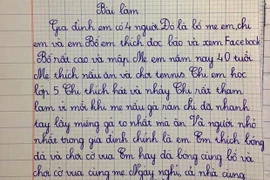 Bài làm
Gia đình em có 4 người Đó là bố mẹ em, chị
em và em Bố em thích đọc báo và xem Facebook
Bố rất cao và mập Mẹ em năm nay 40 tuổi
Mẹ thích nấu ăn và chơi tennis Chị em học
lớp 5 Chị thích hát và nhảy Chị rất tham
lam vì mỗi khi mẹ nấu gà rán chị đã nhanh
tay lấy miếng gà to nhất mà ăn Và người nhỏ
nhất trong gia đình chính là em Em thích bóng
đá và chơi cờ vua Em hay đá bóng cùng bố và
chơi cờ vua cùng mẹ Ngày nghỉ, cả nhà cùng